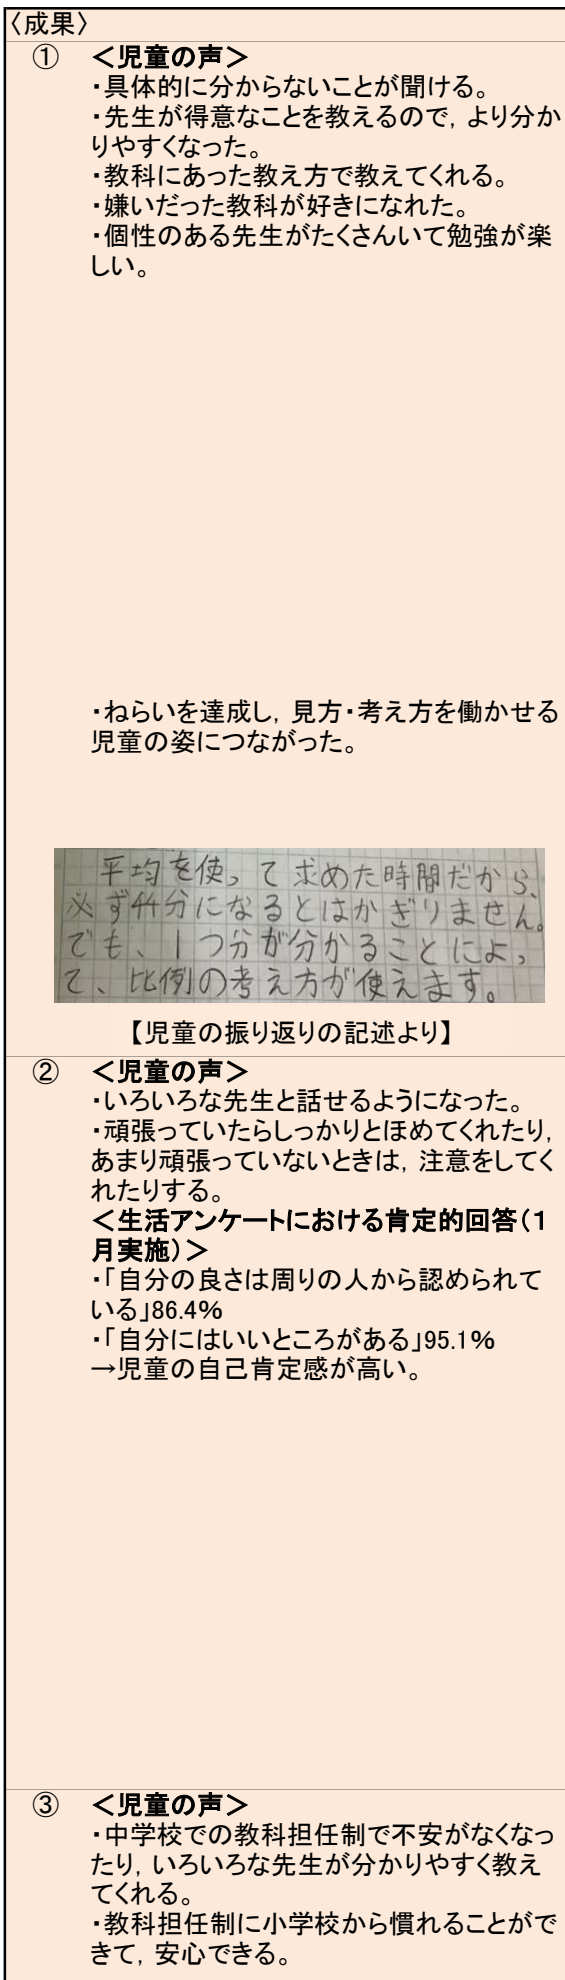 〈成果〉
① ＜児童の声＞
・具体的に分からないことが聞ける。
・先生が得意なことを教えるので，より分か
りやすくなった。
・教科にあった教え方で教えてくれる。
・嫌いだった教科が好きになれた。
・個性のある先生がたくさんいて勉強が楽
しい。
・ねらいを達成し，見方・考え方を働かせる
児童の姿につながった。
平均を使って求めた時間だから、
必ず44分になるとはかぎりません。
でも、1つ分が分かることによっ
て、比例の考え方が使えます。
【児童の振り返りの記述より】
② ＜児童の声＞
・いろいろな先生と話せるようになった。
・頑張っていたらしっかりとほめてくれたり，
あまり頑張っていないときは，注意をしてく
れたりする。
＜生活アンケートにおける肯定的回答（１
月実施）＞
・「自分の良さは周りの人から認められて
いる」86.4％
・「自分にはいいところがある」95.1％
→児童の自己肯定感が高い。
③ ＜児童の声＞
・中学校での教科担任制で不安がなくなっ
たり，いろいろな先生が分かりやすく教え
てくれる。
・教科担任制に小学校から慣れることがで
きて，安心できる。